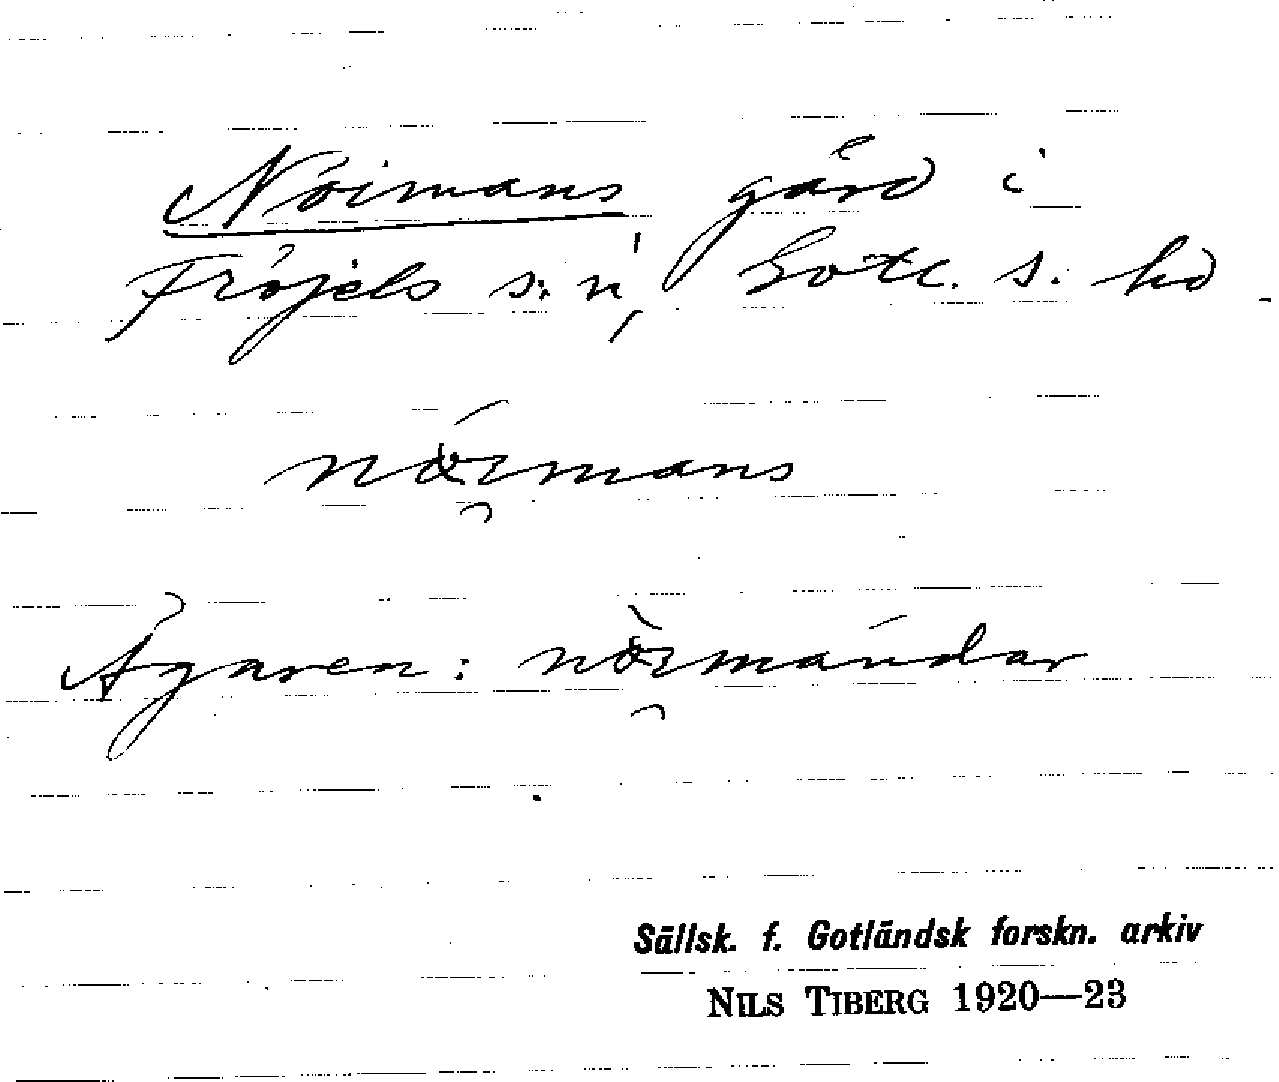 Nôrmans gård i
Fröjels s:n, Gotl. s. hd
nórmans
Ägaren: nòrmándar
Sällsk. f. Gotländsk forskn. arkiv
NILS TIBERG 1920—23